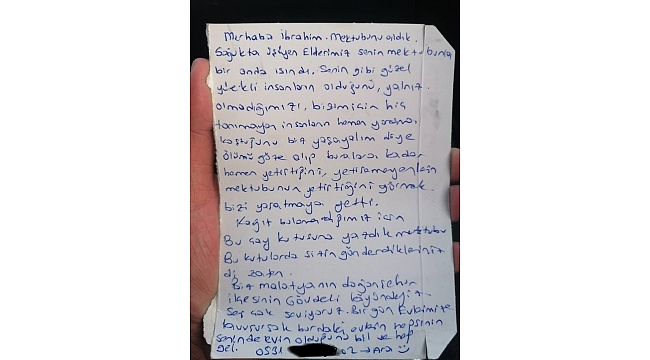 Merhaba İbrahim. Mektubunu aldık.
Soğukta üşüyen Ellerimiz senin mektubunla
bir anda ısındı. Senin gibi güzel
yürekli insanların olduğunu, yalnız
olmadığımızı, bizim için hiç
tanımayan insanların hemen yardıma
koştuğunu biz yaşayalım diye
ölümü göze alıp buralara kadar
hemen yetiştiğini, yetişemeyenlerin
mektubunun yetiştiğini görmek
bizi yaşatmaya yetti.
Kağıt bulamadığımız için
Bu çay kutusuna yazdık mektubu
Bu kutularda sizin gönderdikleriniz
di zaten.
Biz malatyanın doğanşehir
ilçesinin Gövdeli köyündeyiz
Seni çok seviyoruz. Bir gün Evimize
kavuşursak burdaki evlerin hepsinin
senin de evin olduğunu bil ve hep
gel. 0531 02 → Ara